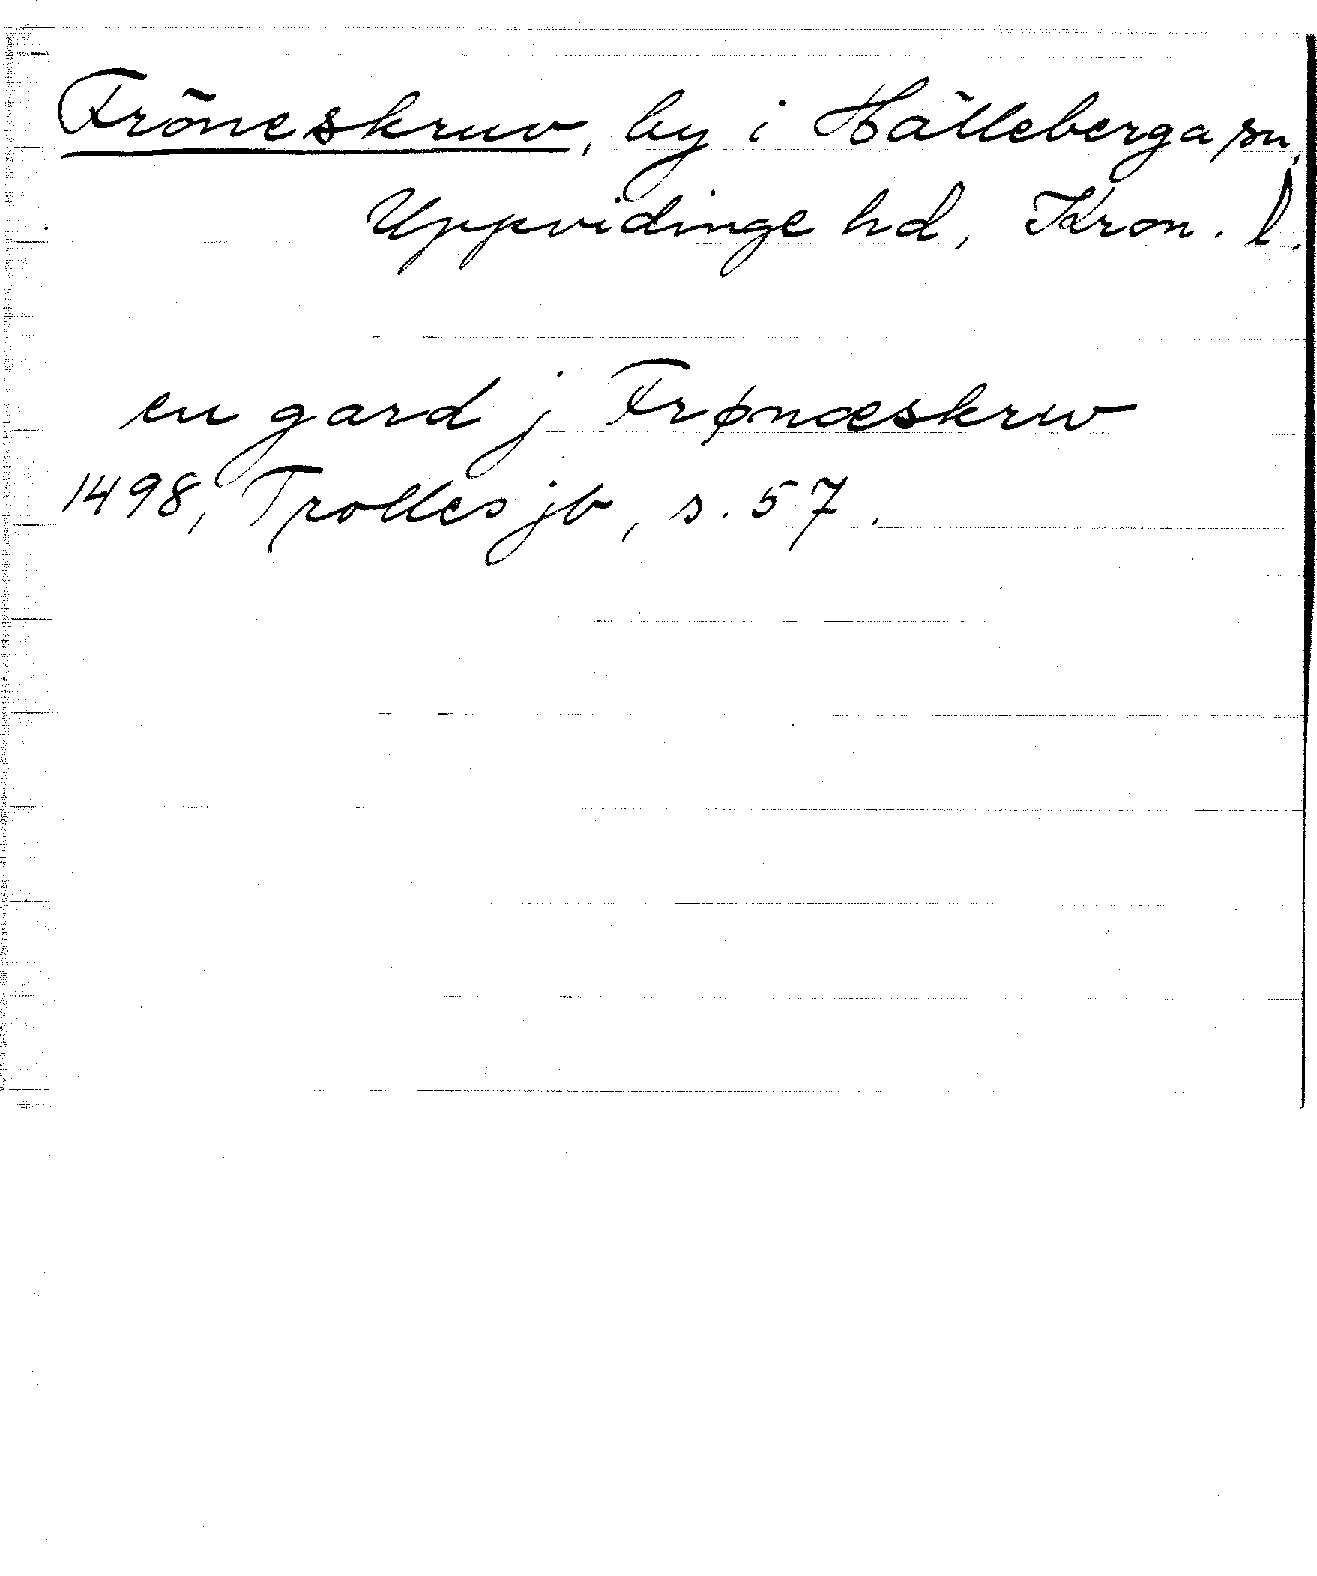 Fröneskruv, by i Hälleberga sn,
Uppvidinge hd, Kron. l.
en gard j Frønæskrw
1498, Trolles jb, s. 57.